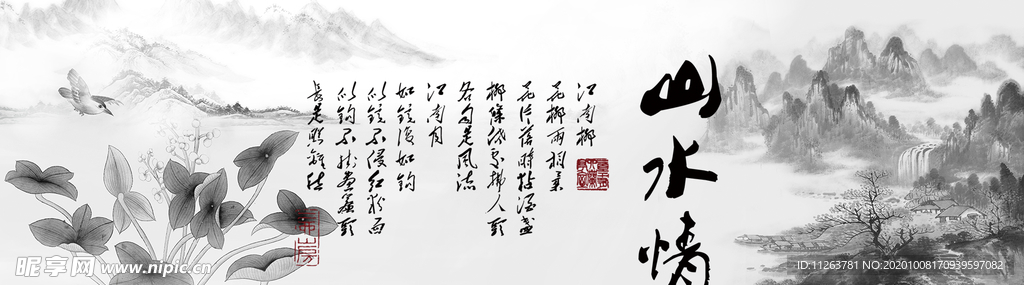 山水情
江南柳
花柳兩相柔
花片落時黏酒盞
柳條低處拂人頭
各自是風流
江南月
如鏡復如鈎
似鏡不侵紅粉面
似鈎不挂畫簾頭
長是照離愁
昵享网 www.nipic.cn
ID:11263781 NO:20201008170939597082